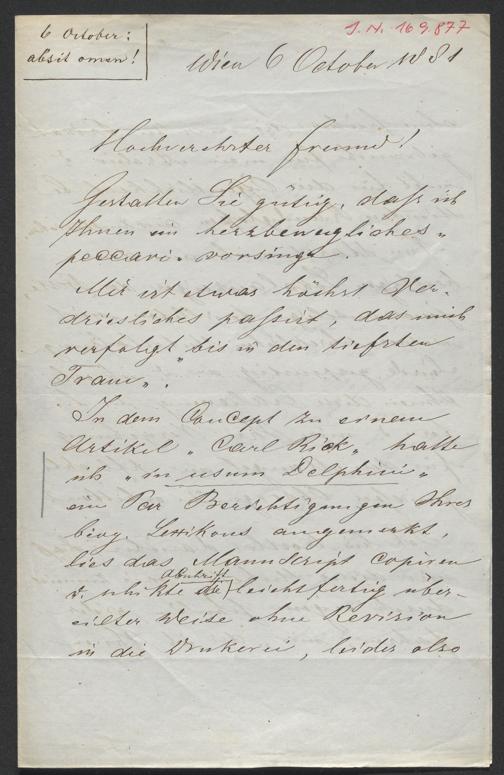 6 October:
absit omen!
I. N. 169.877
Wien 6 October 1881
Hochverehrter Freund!
Gestatten Sie gütig, daß ich
Ihnen ein herzbewegliches „
peccavi" vorsinge.
Mir ist etwas höchst Ver-
driesliches passirt, das mich
verfolgt „bis in den tiefsten
Traum".
In dem Concept zu einem
Artikel „Carl Rick" hatte
ich „in usum Delphini"
ein Par Berichtigungen Ihres
biog. Lexikons angemerkt,
lies das Manuscript copiren
u. schikte die Abschrift leichtfertig über-
eilter Weise ohne Revision
in die Drukerei, leider also